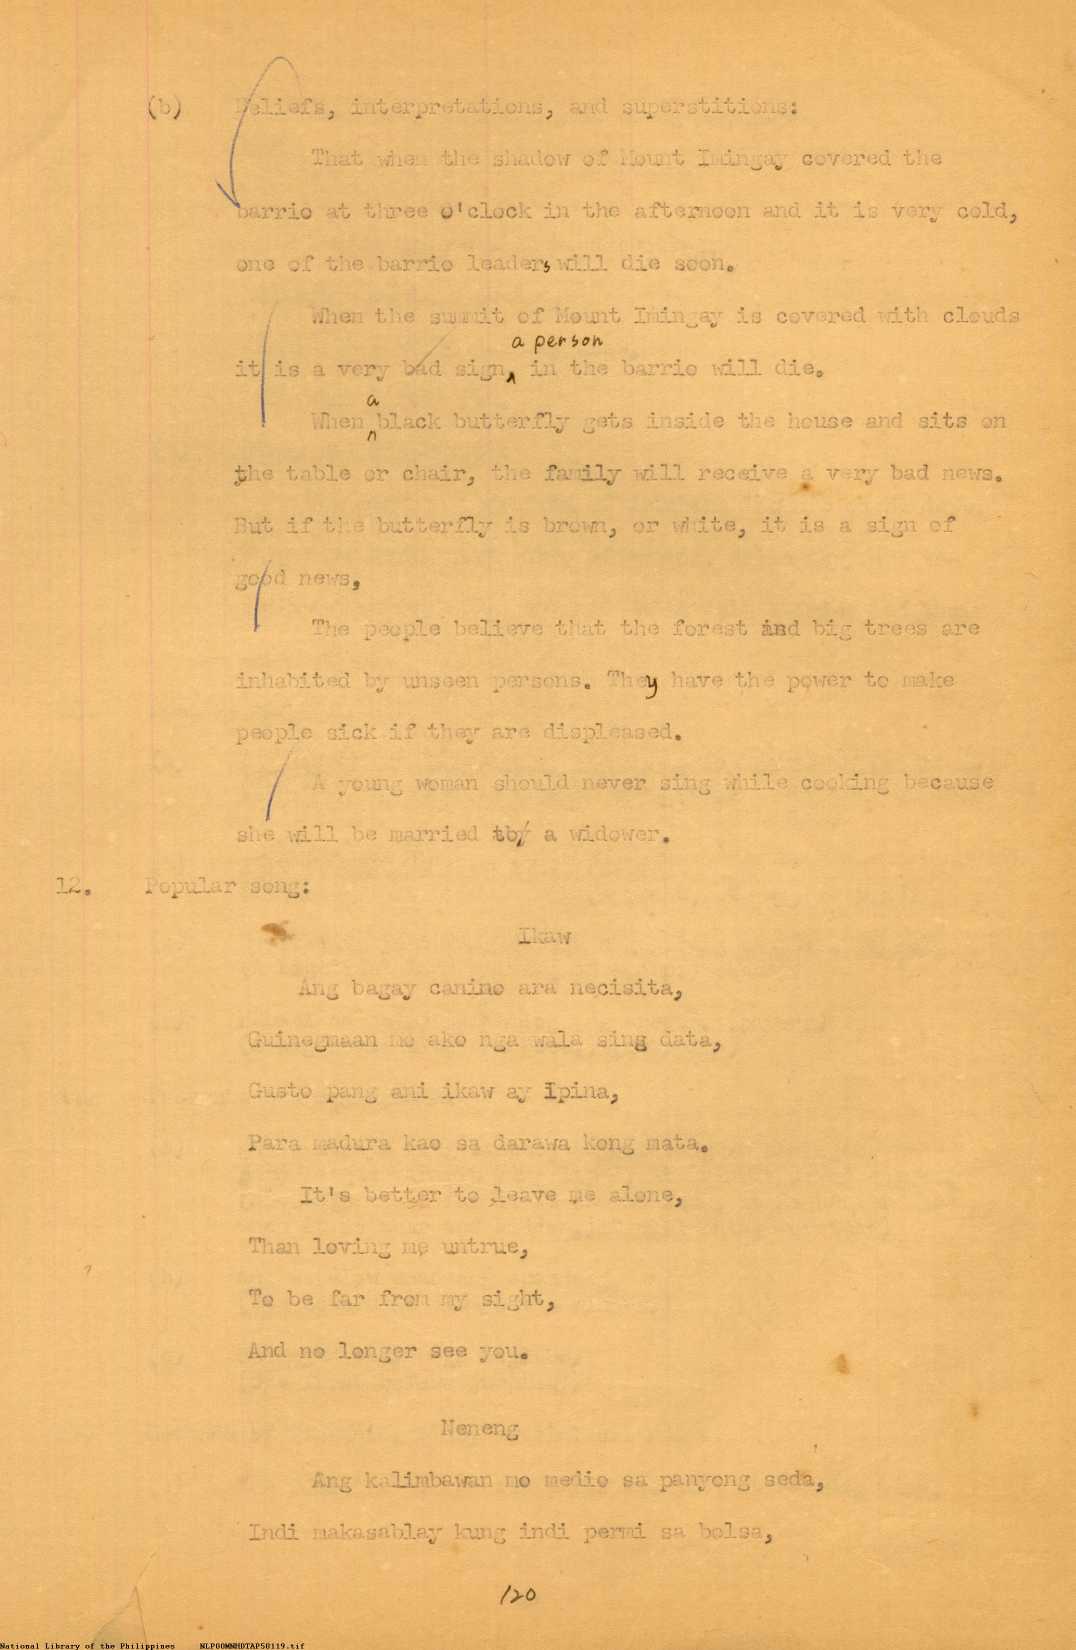 (b) Beliefs, interpretations, and superstitions:
That when the shadow of Mount Imingay covered the
barrio at three o'clock in the afternoon and it is very cold,
one of the barrio leaders will die soon.
When the summit of Mount Imingay is covered with clouds
a person
it is a very bad sign in the barrio will die.
a
When black butterfly gets inside the house and sits on
the table or chair, the family will receive a very bad news.
But if the butterfly is brown, or white, it is a sign of
good news,
The people believe that the forest and big trees are
inhabited by unseen persons. They have the power to make
people sick if they are displeased.
A young woman should never sing while cooking because
she will be married to a widower.
12. Popular song:
Ikaw
Ang bagay canino ara necisita,
Guinegmaan mo ako nga wala sing data,
Gusto pang ani ikaw ay Ipina,
Para madura kao sa darawa kong mata.
It's better to leave me alone,
Than loving me untrue,
To be far from my sight,
And no longer see you.
Neneng
Ang kalimbawan mo medio sa panyong seda,
Indi makasablay kung indi permi sa bolsa,
120
National Library of the Philippines NLPOOMNHDTAPS0119.tif